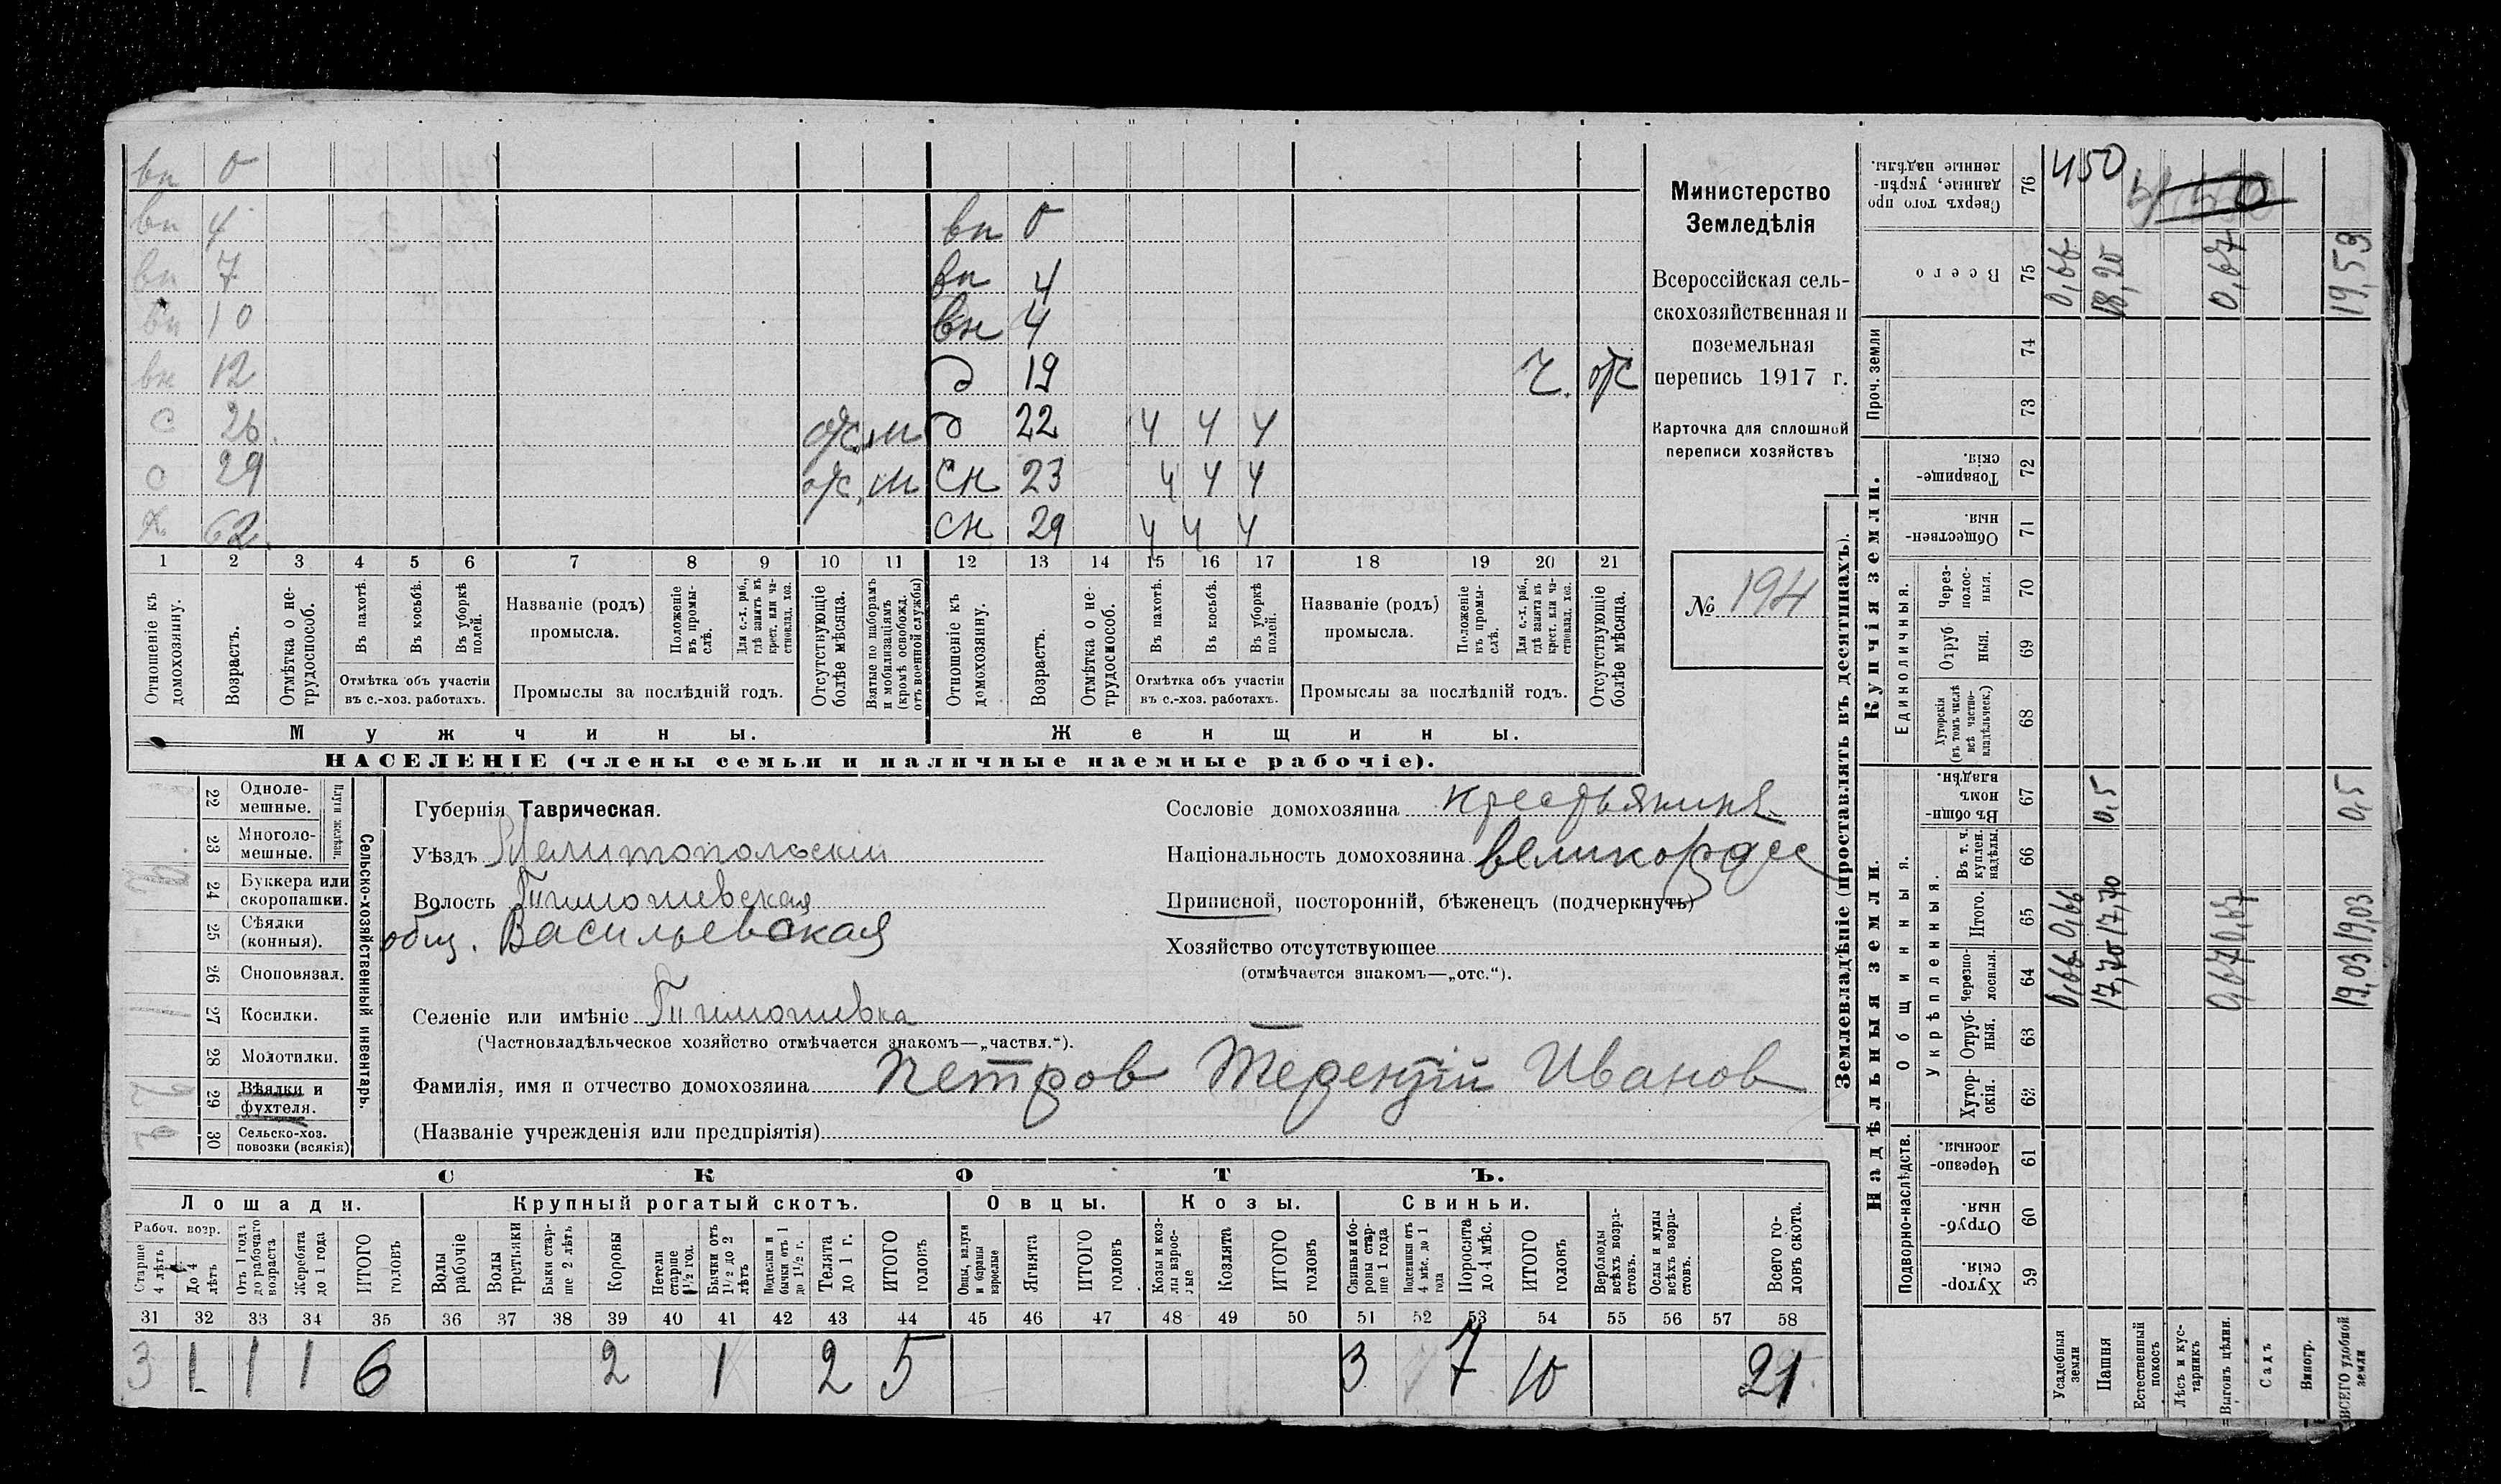 вн 0
вн 4 вн 0
вн 7 вн 4
вн 10 вн 4
вн 12 д 19 ч. отс
с 26. отс. м д 22 ч ч ч
с 29 отс. м сн 23 ч ч ч
х 62. сн 29 ч ч ч
1 2 3 4 5 6 7 8 9 10 11 12 13 14 15 16 17 18 19 20 21
Отношеніе къ домохозяину.
Возрастъ.
Отмѣтка о нетрудоспособ.
Въ пахотѣ.
Въ косьбѣ.
Въ уборкѣ полей.
Отмѣтка объ участіи
въ с.-хоз. работахъ.
Названіе (родъ)
промысла.
Положеніе въ промыслѣ.
Для с.-х. раб., гдѣ занятъ въ крест. или частновлад. хоз.
Промыслы за послѣдній годъ.
Отсутствующіе болѣе мѣсяца.
Взятые по наборамъ и мобилизаціямъ (кромѣ освобожд. отъ военной службы)
Отношеніе къ домохозяину.
Возрастъ.
Отмѣтка о нетрудоспособ.
Въ пахотѣ.
Въ косьбѣ.
Въ уборкѣ полей.
Отмѣтка объ участіи
въ с.-хоз. работахъ.
Названіе (родъ)
промысла.
Положеніе въ промыслѣ.
Для с.-х. раб., гдѣ занята въ крест. или частновлад. хоз.
Промыслы за послѣдній годъ.
Отсутствующіе болѣе мѣсяца.
Мужчины. Женщины.
НАСЕЛЕНІЕ (члены семьи и наличные наемные рабочіе).
Министерство
Земледѣлія
Всероссійская сель-
скохозяйственная и
поземельная
перепись 1917 г.
Карточка для сплошной
переписи хозяйствъ
№ 194
22 Одноле-
мешные.
23 Многоле-
мешные.
Плуги желѣзн.
24 Буккера или
скоропашки.
25 Сѣялки
(конныя).
26 Сноповязал.
27 Косилки.
28 Молотилки.
29 Вѣялки и
фухтеля.
30 Сельско-хоз.
повозки (всякія)
Сельско-хозяйственный инвентарь.
Губернія Таврическая.
Уѣздъ Мелитопольскій
Волость Тимошевская
общ. Васильевская
Селеніе или имѣніе Тимошевка
(Частновладѣльческое хозяйство отмѣчается знакомъ—„частвл.“).
Фамилія, имя и отчество домохозяина Петров Терентій Иванов
(Названіе учрежденія или предпріятія)
Сословіе домохозяина крестьянинъ
Національность домохозяина великоросс
Приписной, посторонній, бѣженецъ (подчеркнуть)
Хозяйство отсутствующее
(отмѣчается знакомъ—„отс.“).
СКОТЪ.
Лошади. Крупный рогатый скотъ. Овцы. Козы. Свиньи.
Рабоч. возр.
Старше 4 лѣтъ
До 4 лѣтъ
Отъ 1 года до рабочаго возраста
Жеребята до 1 года
ИТОГО головъ
Волы рабочіе
Волы третьяки
Быки старше 2 лѣтъ
Коровы
Нетели старше 1½ год.
Бычки отъ 1½ до 2 лѣтъ
Подтелки и бычки отъ 1 до 1½ г.
Телята до 1 г.
ИТОГО головъ
Овцы, валухи и бараны взрослые
Ягнята
ИТОГО головъ
Козы и козлы взрослые
Козлята
ИТОГО головъ
Свиньи и боровы старше 1 года
Подсвинки отъ 4 мѣс. до 1 года
Поросята до 4 мѣс.
ИТОГО головъ
Верблюды всѣхъ возрастовъ.
Ослы и мулы всѣхъ возрастовъ.
Всего головъ скота.
31 32 33 34 35 36 37 38 39 40 41 42 43 44 45 46 47 48 49 50 51 52 53 54 55 56 57 58
3 1 1 1 6 2 1 2 5 3 7 10 21
Землевладѣніе (проставлять въ десятинахъ).
Надѣльныя земли. Купчія земли.
Подворно-наслѣдств.
Общинныя.
Укрѣпленныя.
Единоличныя.
Проч. земли
Хуторскія. 59
Отрубныя. 60
Черезполосныя. 61
Хуторскія. 62
Отрубныя. 63
Черезполосныя. 64
Итого. 65
Въ т. ч. куплен. надѣлы. 66
Въ общинномъ владѣн. 67
Хуторскія (въ томъ числѣ всѣ частновладѣльческ.) 68
Отрубныя. 69
Черезполосныя. 70
Общественныя. 71
Товарищескія. 72
73
74
Всего 75
Сверхъ того проданные, укрѣпленные надѣлы. 76
Усадебныя земли 0,66 0,66 0,66 450
Пашня 17,70 17,70 0,5 18,20
Естественный покосъ
Лѣсъ и кустарникъ
Выгонъ цѣлин. 0,67 0,67 0,67
Садъ
Виногр.
ВСЕГО удобной земли 19,03 19,03 0,5 19,53